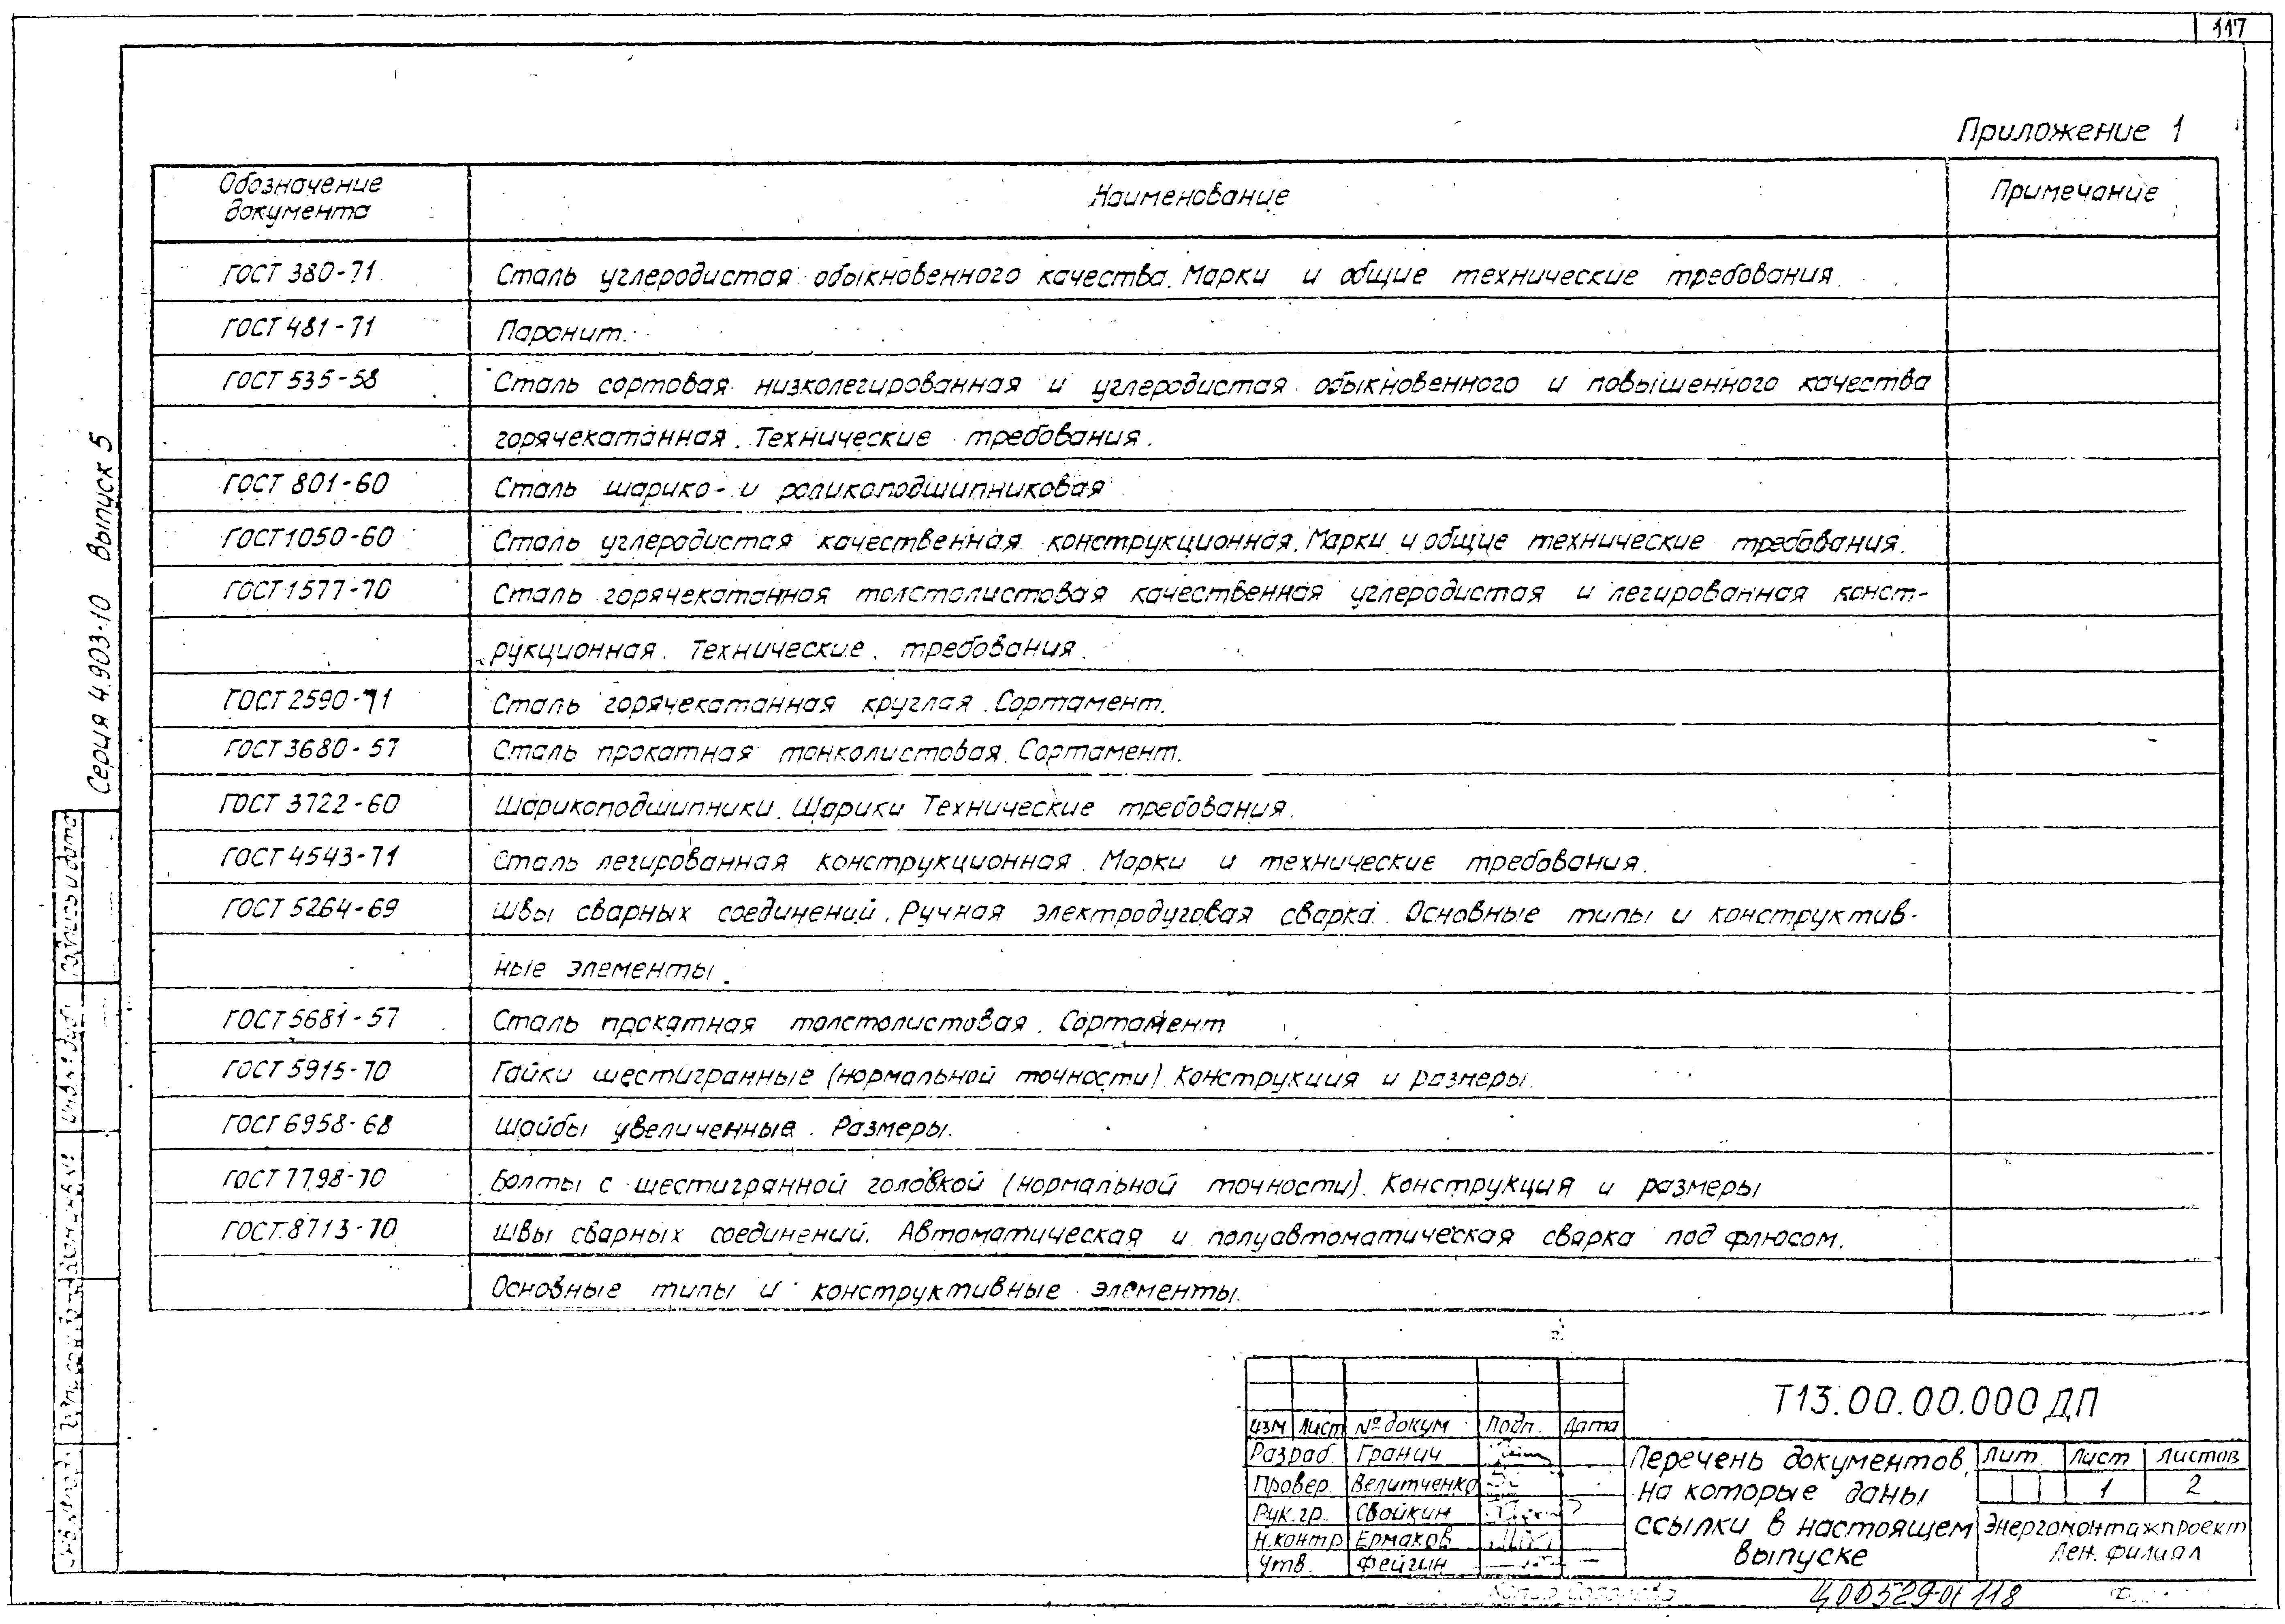 117
Приложение 1
Обозначение документа Наименование Примечание
ГОСТ 380-71 Сталь углеродистая обыкновенного качества. Марки и общие технические требования.
ГОСТ 481-71 Паронит.
ГОСТ 535-58 Сталь сортовая низколегированная и углеродистая обыкновенного и повышенного качества
горячекатанная. Технические требования.
ГОСТ 801-60 Сталь шарико- и роликоподшипниковая
ГОСТ 1050-60 Сталь углеродистая качественная конструкционная. Марки и общие технические требования.
ГОСТ 1577-70 Сталь горячекатанная толстолистовая качественная углеродистая и легированная конст-
рукционная. Технические требования.
ГОСТ 2590-71 Сталь горячекатанная круглая. Сортамент.
ГОСТ 3680-57 Сталь прокатная тонколистовая. Сортамент.
ГОСТ 3722-60 Шарикоподшипники. Шарики Технические требования.
ГОСТ 4543-71 Сталь легированная конструкционная. Марки и технические требования.
ГОСТ 5264-69 Швы сварных соединений. Ручная электродуговая сварка. Основные типы и конструктив-
ные элементы.
ГОСТ 5681-57 Сталь прокатная толстолистовая. Сортамент
ГОСТ 5915-70 Гайки шестигранные (нормальной точности). Конструкция и размеры.
ГОСТ 6958-68 Шайбы увеличенные. Размеры.
ГОСТ 7798-70 Болты с шестигранной головкой (нормальной точности). Конструкция и размеры
ГОСТ 8713-70 Швы сварных соединений. Автоматическая и полуавтоматическая сварка под флюсом.
Основные типы и конструктивные элементы.
Серия 4.903-10 Выпуск 5
Подпись и дата
Т13.00.00.000 ДП
Изм Лист № докум Подп. Дата
Разраб. Гранич
Провер. Велитченко
Рук. гр. Свойкин
Н.контр Ермаков
Утв. Фейгин
Перечень документов,
на которые даны
ссылки в настоящем
выпуске
Лит. Лист Листов
1 2
Энергомонтажпроект
Лен. филиал
Ц00529-01 118